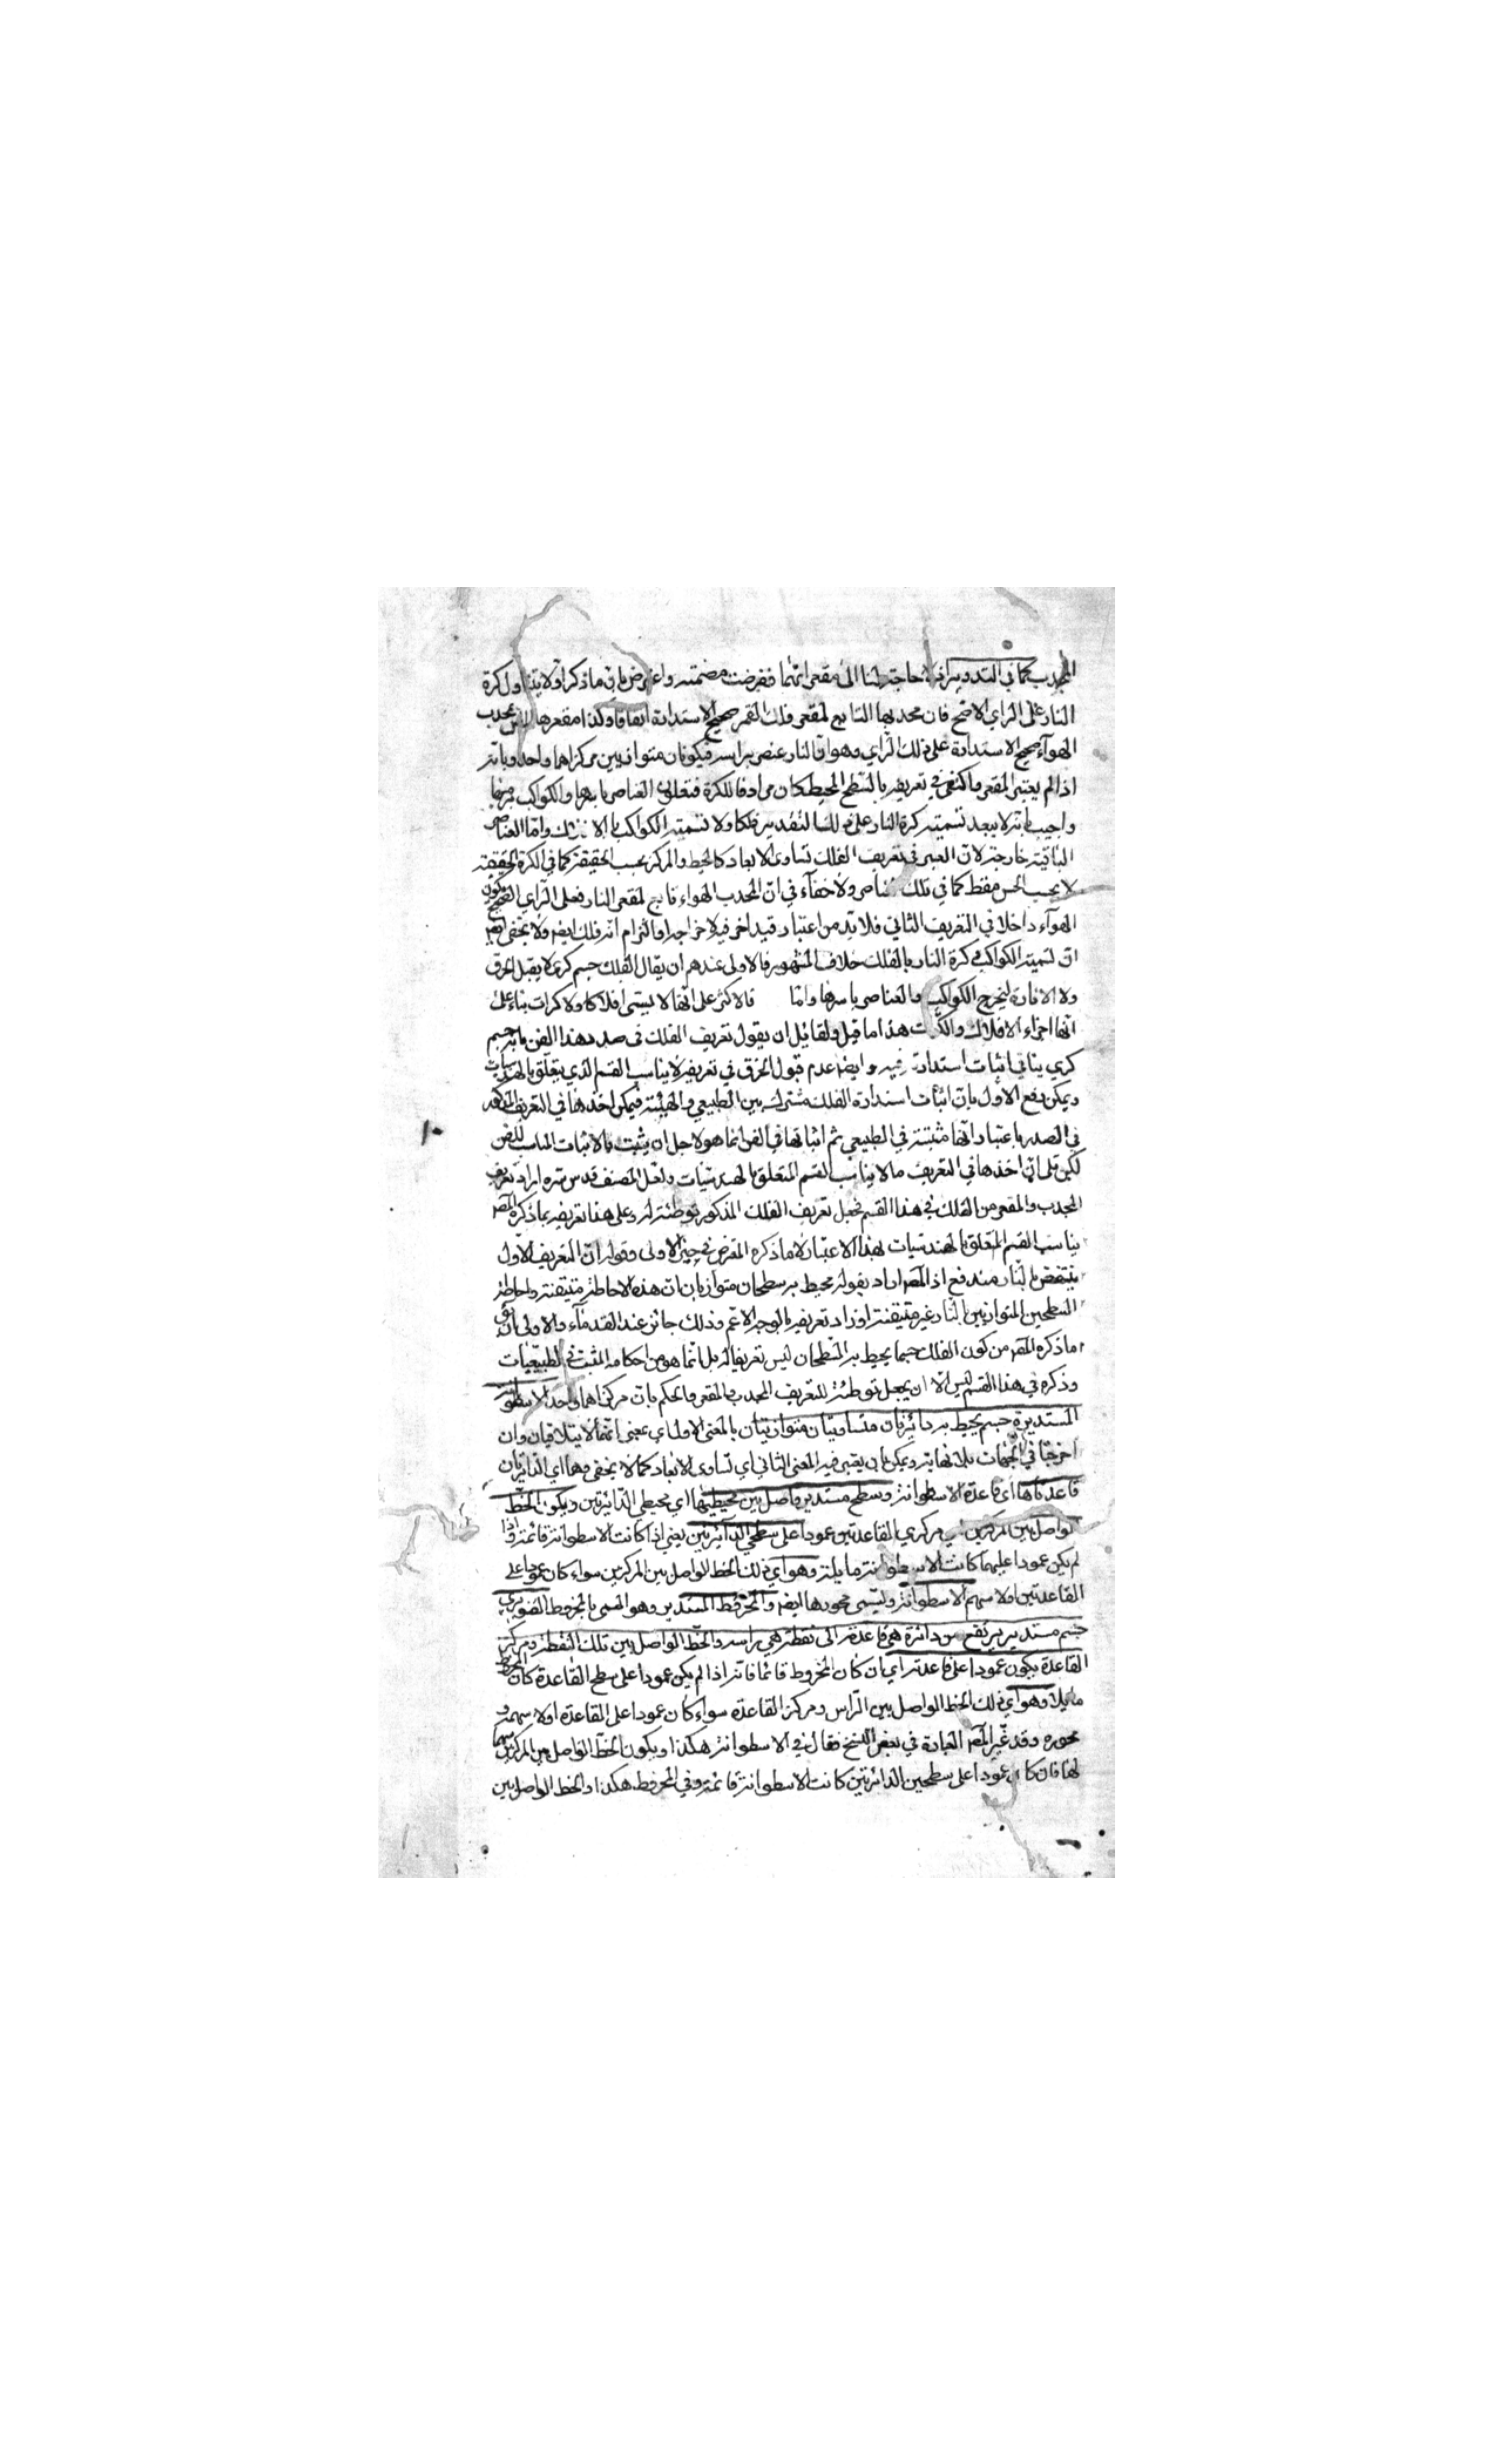 المحدب كما في التدوير اذ لا حاجة لنا الى مقعراتهما ففرضت مضمتة واعترض بان ما ذكر اولا يتناول كرة
النار على الراي الاصح فان محدبها التابع لمقعر فلك القمر صحيح الاستدارة اتفاقا وكذا مقعرها لان محدب
الهواء صحيح الاستدارة على ذلك الراي وهو ان النار عنصر براسه فيكونان متوازيين مركزاهما واحد وبانه
اذا لم يعتبر المقعر واكتفى في تعريفه بالسطح المحيط كان مرادفا للكرة فتدخل العناصر باسرها والكواكب
واجيب بانه لا يبعد تسمية كرة النار على ذلك التقدير فلكا ولا تسمية الكواكب بالافلاك واما العناصر
الباقية خارجة لان المعتبر في تعريف الفلك تساوي الابعاد كالمحيط والمركز بحسب الحقيقة كما في الكرة الحقيقة
لا بحسب الحس فقط كما في تلك العناصر ولا خفاء في ان المحدب الهواء تابع لمقعر النار فعلى الراي الصحيح يكون
الهواء داخلا في التعريف الثاني فلا بد من اعتبار قيد اخر فيه لاخراجه او التزام انه فلك ايضا ولا يخفى ايضا
ان تسمية الكواكب وكرة النار بالفلك خلاف المشهور فالاولى عندهم ان يقال الفلك جسم كري لا يقبل الخرق
ولا الانارة ليخرج الكواكب والعناصر باسرها واما قالاكثر على انها لا يسمى افلاكا ولا كرات بناء على
انها اجزاء الافلاك والكرات هذا ما قيل ولقائل ان يقول تعريف الفلك في صدد هذا الفن بانه جسم
كري ينافي اثبات استدارته فيه وايضا عدم قبول الخرق في تعريفه لا يناسب القسم الذي يتعلق بالهندسيات
ويمكن دفع الاول بان اثبات استدارة الفلك مشترك بين الطبيعي والهيئة فيمكن اخذها في التعريف المذكور
في الصدر باعتبار انها مثبتة في الطبيعي ثم اثباتها في الفن انما هو لاجل ان يثبت بالاثبات المناسب للفن
لكن على ان اخذها في التعريف مما لا يناسب القسم المتعلق بالهندسيات ولعل المصنف قدس سره اراد تعريف
المحدب والمقعر من الفلك في هذا القسم فجعل تعريف الفلك المذكور توطئة له وعلى هذا تعريفه بما ذكره المصـ
يناسب القسم المتعلق بالهندسيات لهذا الاعتبار لا ما ذكره المعترض في حيز الاولى وقوله ان التعريف الاول
ينتقض بالنار مندفع اذ المصـ اراد بقوله محيط به سطحان متوازيان ان هذه الاحاطة متيقنة واحاطة
السطحين المتوازيين بالنار غير متيقنة او اراد تعريفه بالوجه الاعم وذلك جائز عند القدماء والاولى ان يق
ما ذكره المصـ من كون الفلك جسما يحيط به السطحان ليس تعريفا له بل انما هو من احكامه المثبت في الطبيعيات
وذكره في هذا القسم ليس الا ان يجعل توطئة للتعريف المحدب والمقعر والحكم بان مركزاهما واحد الاسطوانة
المستديرة جسم يحيط به دائرتان متساويتان متوازيتان بالمعنى الاول اي بمعنى انهما لا يتلاقيان وان
اخرجتا في الجهات بلا نهاية ويمكن بان يعتبر فيه المعنى الثاني اي تساوي الابعاد كما لا يخفى وهما اي الدائرتان
قاعدتاها اي قاعدة الاسطوانة وسطح مستدير واصل بين محيطيهما اي محيطي الدائرتين ويكون الخط
الواصل بين المركزين اي مركزي القاعدتين عمودا على سطحي الدائرتين يعني اذا كانت الاسطوانة قائمة واذا
لم يكن عمودا عليهما كانت الاسطوانة مايلة وهو اي ذلك الخط الواصل بين المركزين سواء كان عمودا على
القاعدتين اولا سهم الاسطوانة ويسمى محورها ايضا والمخروط المستدير وهو المسمى بالمخروط الصنوبري
جسم مستدير يرتفع من دائرة هي قاعدة الى نقطة هي راسه والخط الواصل بين تلك النقطة ومركز
القاعدة يكون عمودا على قاعدته اي ان كان المخروط قائما فانه اذا لم يكن عمودا على سطح القاعدة كان المخروط
مايلا وهو اي ذلك الخط الواصل بين الراس ومركز القاعدة سواء كان عمودا على القاعدة اولا سهمه و
محوره وقد غير المصـ العبارة في بعض النسخ فقال في الاسطوانة هكذا ويكون الخط الواصل بين المركزين سهما
لها فان كان عمودا على سطحين الدائرتين كانت الاسطوانة قائمة وفي المخروط هكذا والخط الواصل بين